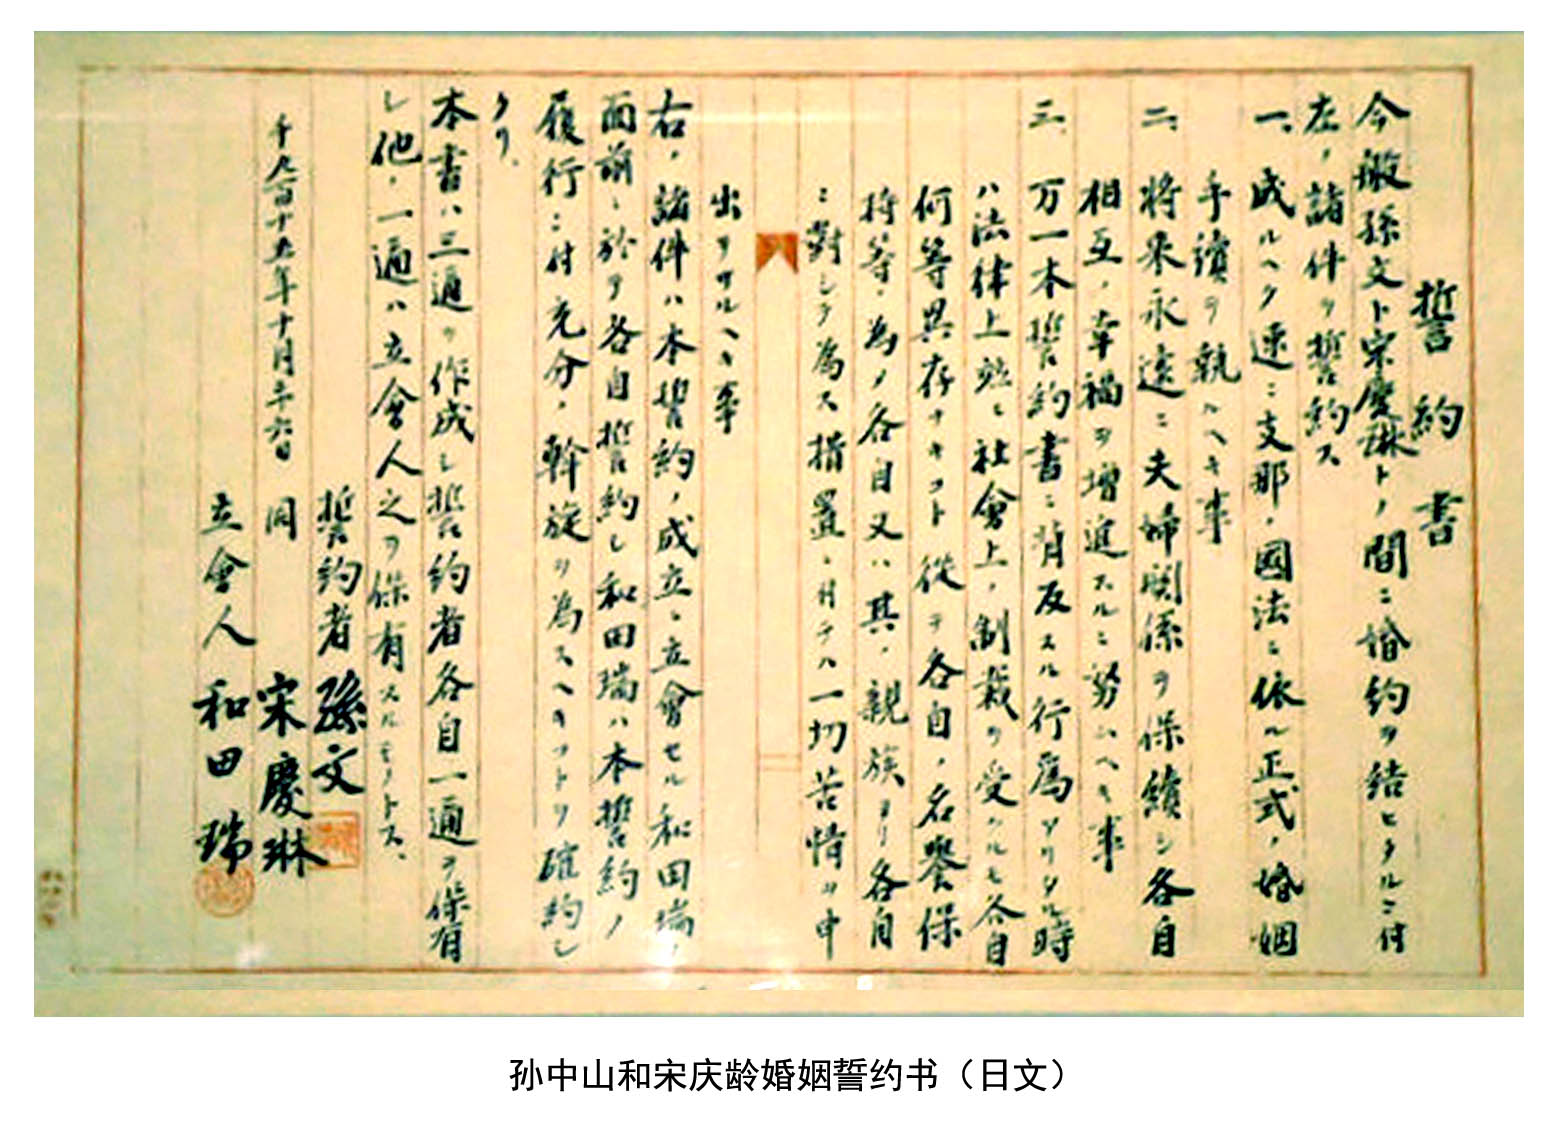 誓約書
今般孫文ト宋慶琳トノ間ニ婚約ヲ結ヒタルニ付
左ノ諸件ヲ誓約ス
一、成ルヘク速ニ支那ノ國法ニ依ル正式ノ婚姻
手續ヲ執ルヘキ事
二、将来永遠ニ夫婦関係ヲ保續シ各自
相互ノ幸福ヲ増進スルニ努ムヘキ事
三、万一本誓約書ニ背反スル行為アリタル時
ハ法律上並ニ社會上ノ制裁ヲ受クルモ各自
何等異存ナキコト從テ各自ノ名譽保
持等ノ為メ各自又ハ其ノ親族ヨリ各自
ニ對シテ為ス措置ニ付テハ一切苦情ヲ申
出ヲサルヘキ事
右ノ諸件ハ本誓約ノ成立ニ立會セル和田瑞ノ
面前ニ於テ各自誓約シ和田瑞ハ本誓約ノ
履行ニ付充分ノ斡旋ヲ為スヘキコトヲ確約シ
タリ、
本書ハ三通ヲ作成シ誓約者各自一通ヲ保有
シ他ノ一通ハ立會人之ヲ保有スルモノトス、
誓約者 孫文
千九百十五年十月二十六日 同 宋慶琳
立會人 和田瑞
孙中山和宋庆龄婚姻誓约书（日文）